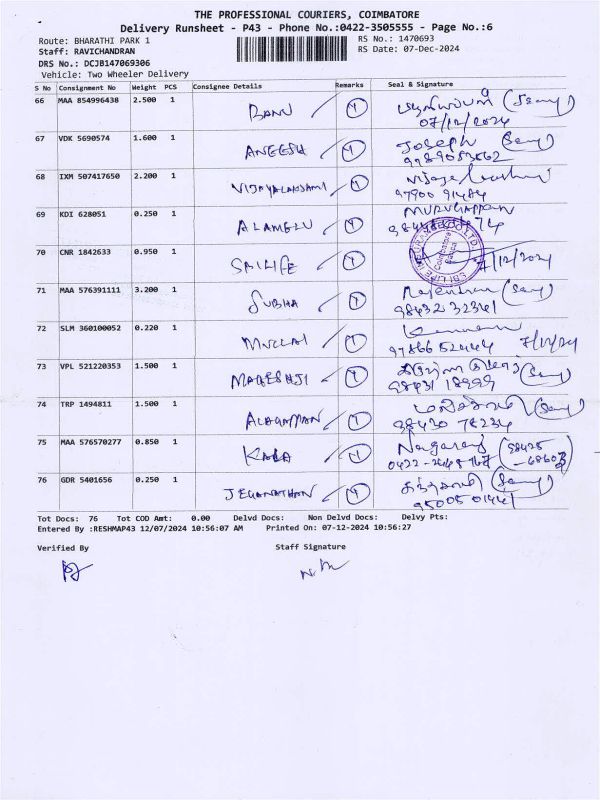 THE PROFESSIONAL COURIERS, COIMBATORE
Delivery Runsheet - P43 - Phone No.:0422-3505555 - Page No.:6
Route: BHARATHI PARK 1
RS No.: 1470693
Staff: RAVICHANDRAN
RS Date: 07-Dec-2024
DRS No.: DCJB147069306
Vehicle: Two Wheeler Delivery
S No Consignment No Weight PCS Consignee Details Remarks Seal & Signature
66 MAA 854996438 2.500 1 BANU
07/12/2024
67 VDK 5690574 1.600 1 ANEESH Joseph
68 IXM 507417650 2.200 1 VIJAYALAKSHMI
97900 91484
69 KDI 628051 0.250 1 ALAMELU MURUGAPPAN
70 CNR 1842633 0.950 1 SBILIFE 7/12/2024
71 MAA 576391111 3.200 1 SUBHA Rajendran
98432 32341
72 SLM 360100052 0.220 1 MULLAI
97866 52444 7/12/24
73 VPL 521220353 1.500 1 MAHESHJI
98431 18999
74 TRP 1494811 1.500 1 ALAGAPPAN
98430 78234
75 MAA 576570277 0.850 1 KALA Nagaraj
76 GDR 5401656 0.250 1 JEGANATHAN
95005 01441
Tot Docs: 76 Tot COD Amt: 0.00 Delvd Docs: Non Delvd Docs: Delvy Pts:
Entered By :RESHMAP43 12/07/2024 10:56:07 AM Printed On: 07-12-2024 10:56:27
Verified By Staff Signature